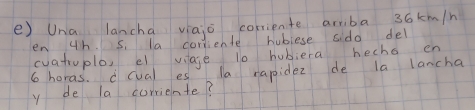 e) Una lancha viajó corriente arriba 36 km/h
en 4h. Si la corriente hubiese sido del
cuatruplo, el viaje lo hubiera hecho en
6 horas. ¿ cual es la rapidez de la lancha
y de la corriente?